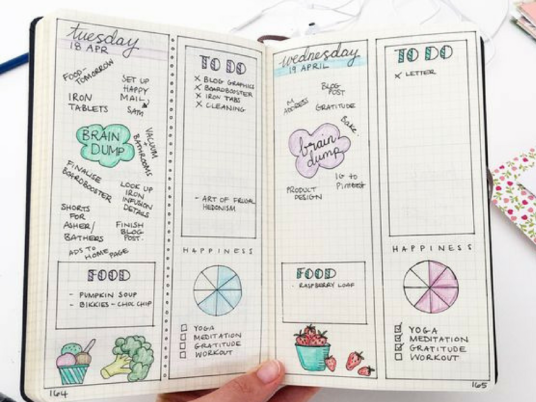 tuesday
18 APR
FOOD-
TOMORROW
SET UP
HAPPY
MAIL
IRON
TABLETS
SATH
BRAIN
DUMP
VACUUM
BATHROOMS
FINALISE
BOARDBOOSTER
LOOK UP
IRON
INFUSION
DETAILS
SHORTS
FOR
ASHER/
BATHERS
FINISH
BLOG
POST
ADS TO HOME PAGE
FOOD
- PUMPKIN SOUP
- BIKKIES - CHOC CHIP
164
TO DO
X BLOG GRAPHICS
X BOARDBOOSTER
X IRON TABS
X CLEANING
- ART OF FRUGAL
HEDONISM
HAPPINESS
YOGA
MEDITATION
GRATITUDE
WORKOUT
wednesday
19 APRIL
BLOG
POST
ADDRESS
GRATITUDE
Bake
brain
dump
PRODUCT
DESIGN
IG to
Pinterest
FOOD
RASPBERRY LOAF
TO DO
X LETTER
HAPPINESS
YOGA
MEDITATION
GRATITUDE
WORKOUT
165